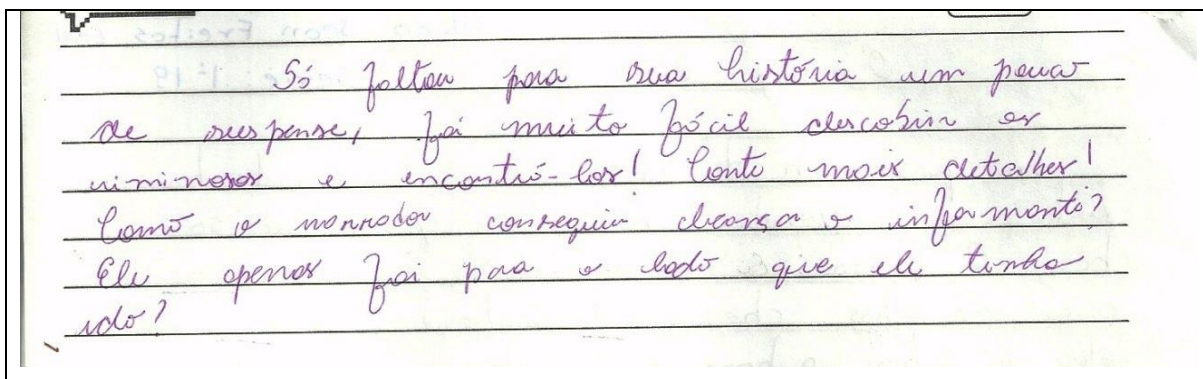 Só faltou para sua história um pouco
de suspense, foi muito fácil descobrir os
criminosos e encontrá-los! Conte mais detalhes!
Como o narrador conseguiu alcançar o informante?
Ele apenas foi para o lado que ele tinha
ido?